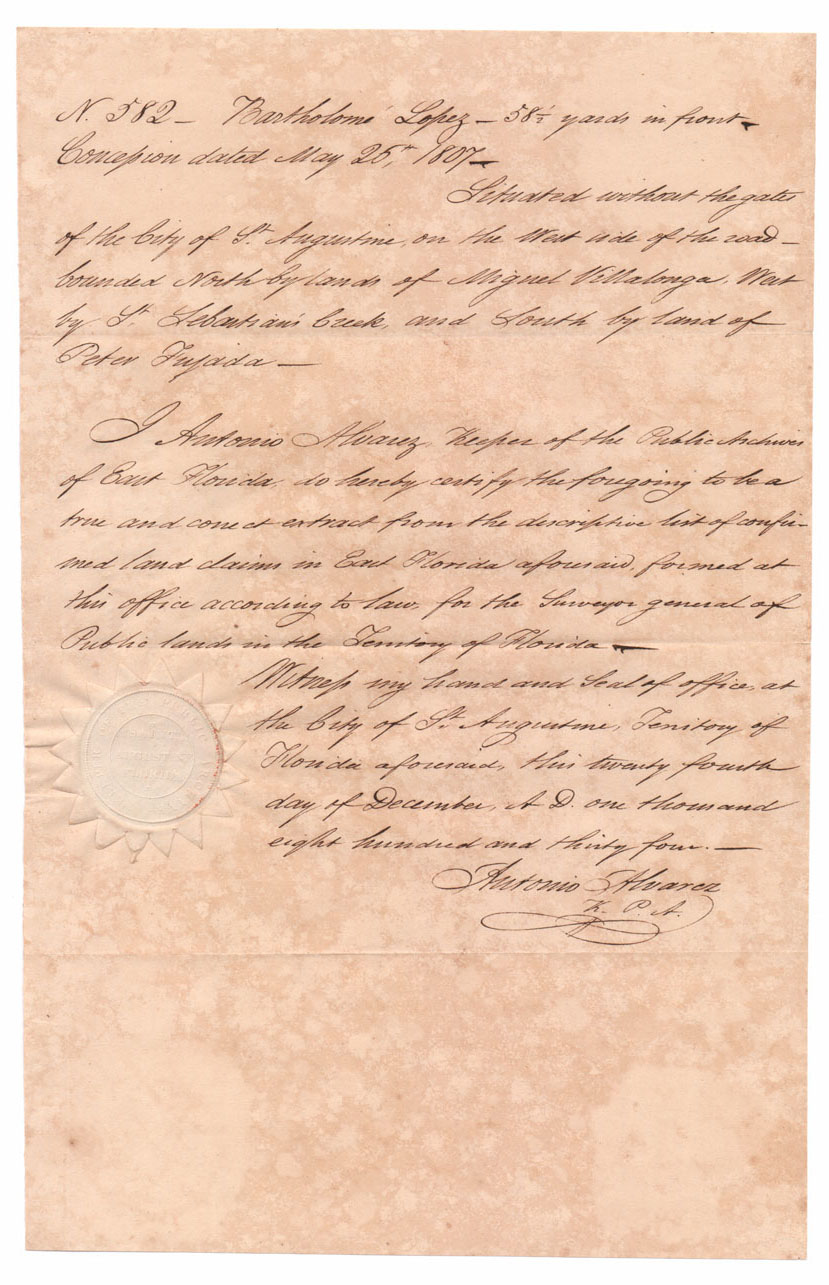 N. 582 — Bartholomé Lopez — 58½ yards in front —
Concepion dated May 25th, 1807 —
Situated without the gates
of the City of St. Augustine, on the West side of the road —
bounded North by lands of Miguel Villalonga, West
by St. Sebastian's Creek, and South by land of
Peter Fujada —
I Antonio Alvarez, Keeper of the Public Archives
of East Florida, do hereby certify the foregoing to be a
true and conect extract from the descriptive list of confir-
med land claims in East Florida aforesaid, formed at
this office according to law, for the Surveyor general of
Public lands in the Territory of Florida —
Witness my hand and Seal of office, at
the City of St. Augustine, Territory of
Florida aforesaid, this twenty fourth
day of December, A D. one thousand
eight hundred and thirty four. —
Antonio Alvarez
K. P. A.